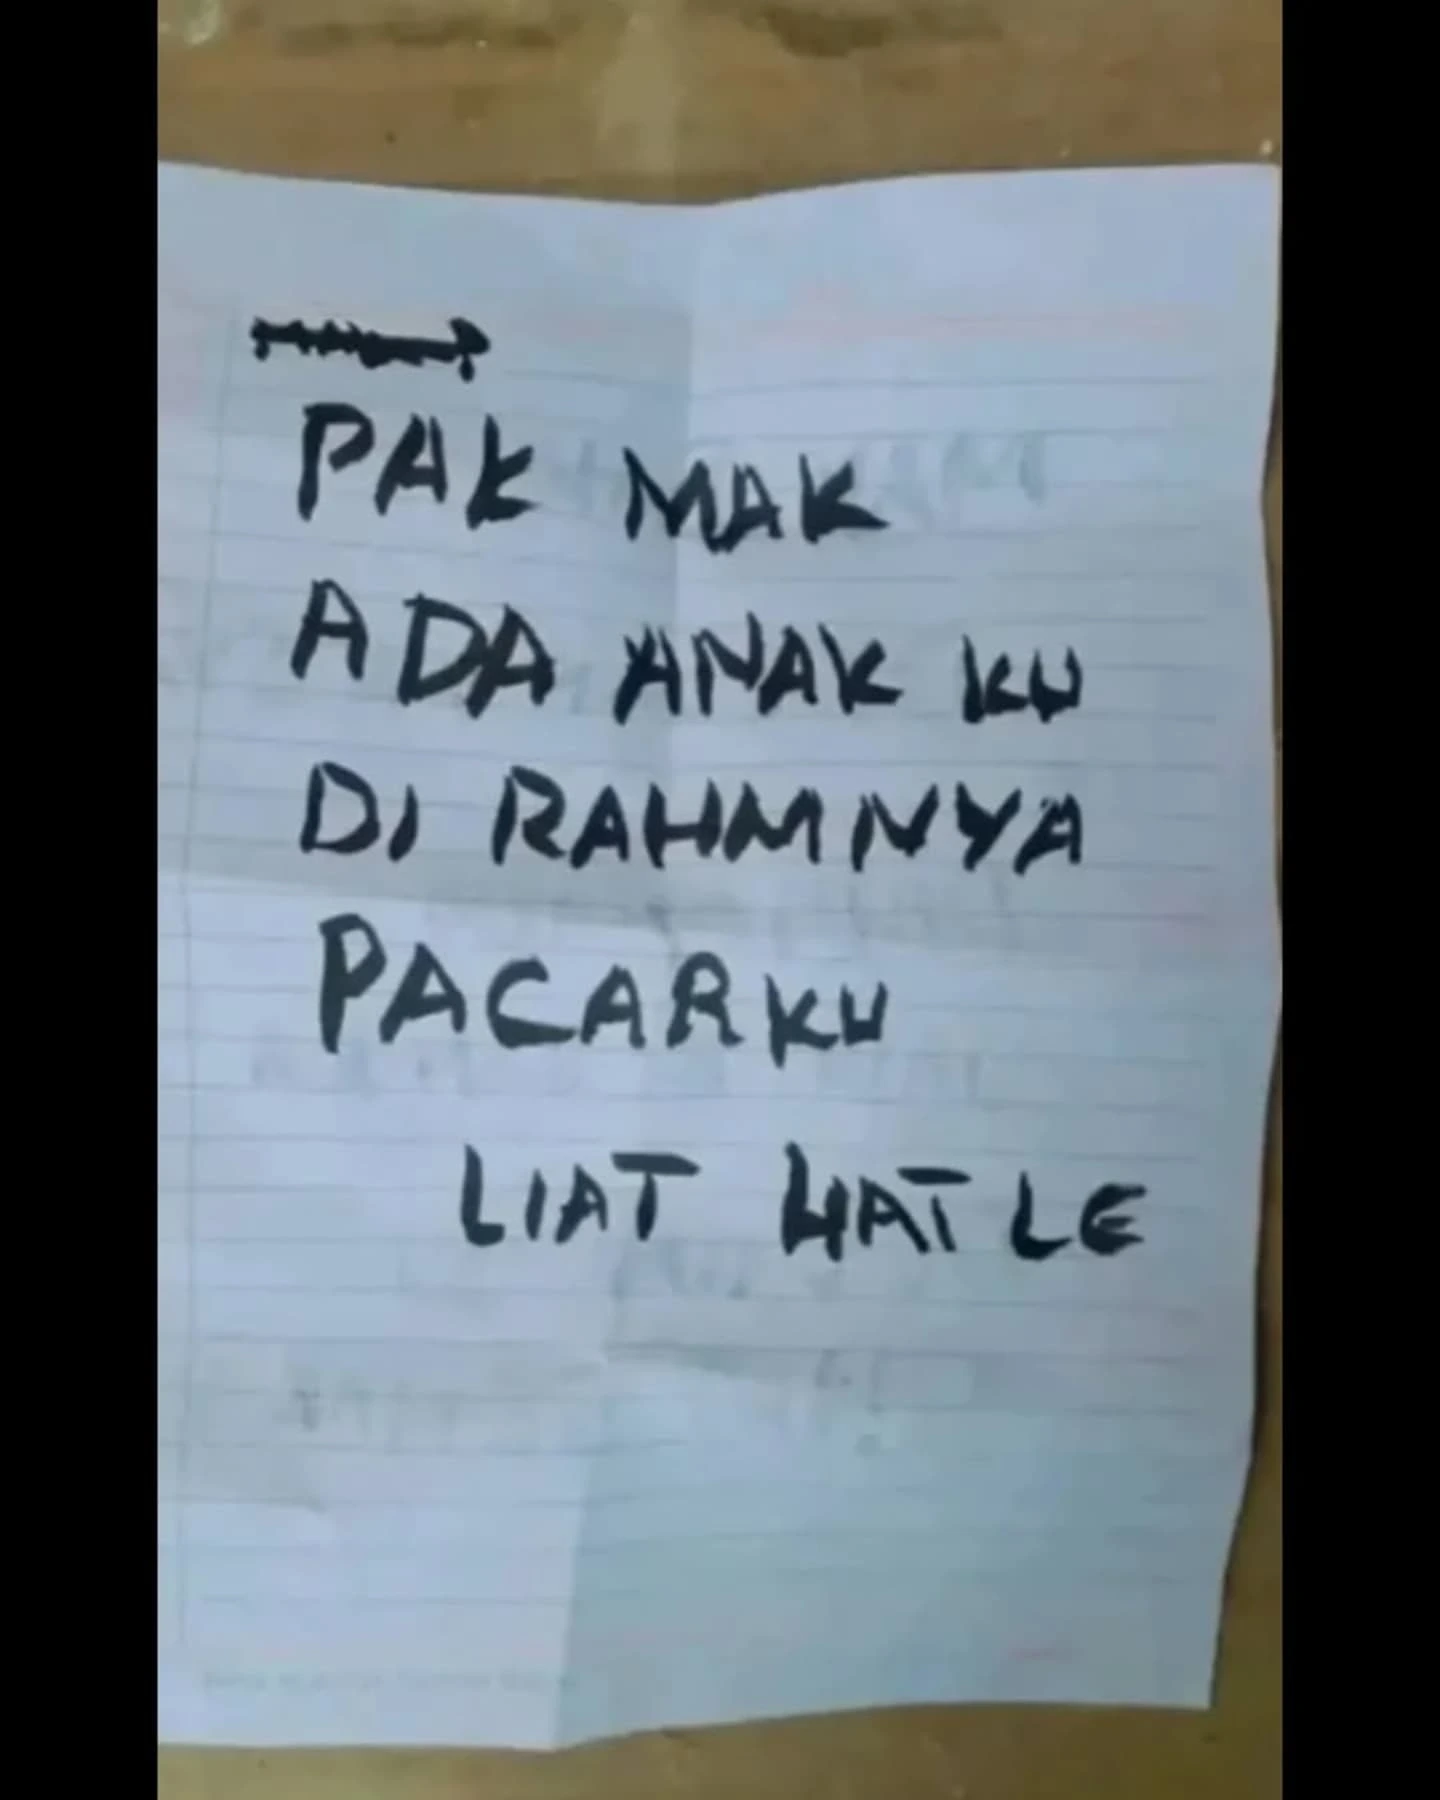 PAK MAK
ADA ANAK KU
DI RAHMNYA
PACARKU
LIAT LIAT LE